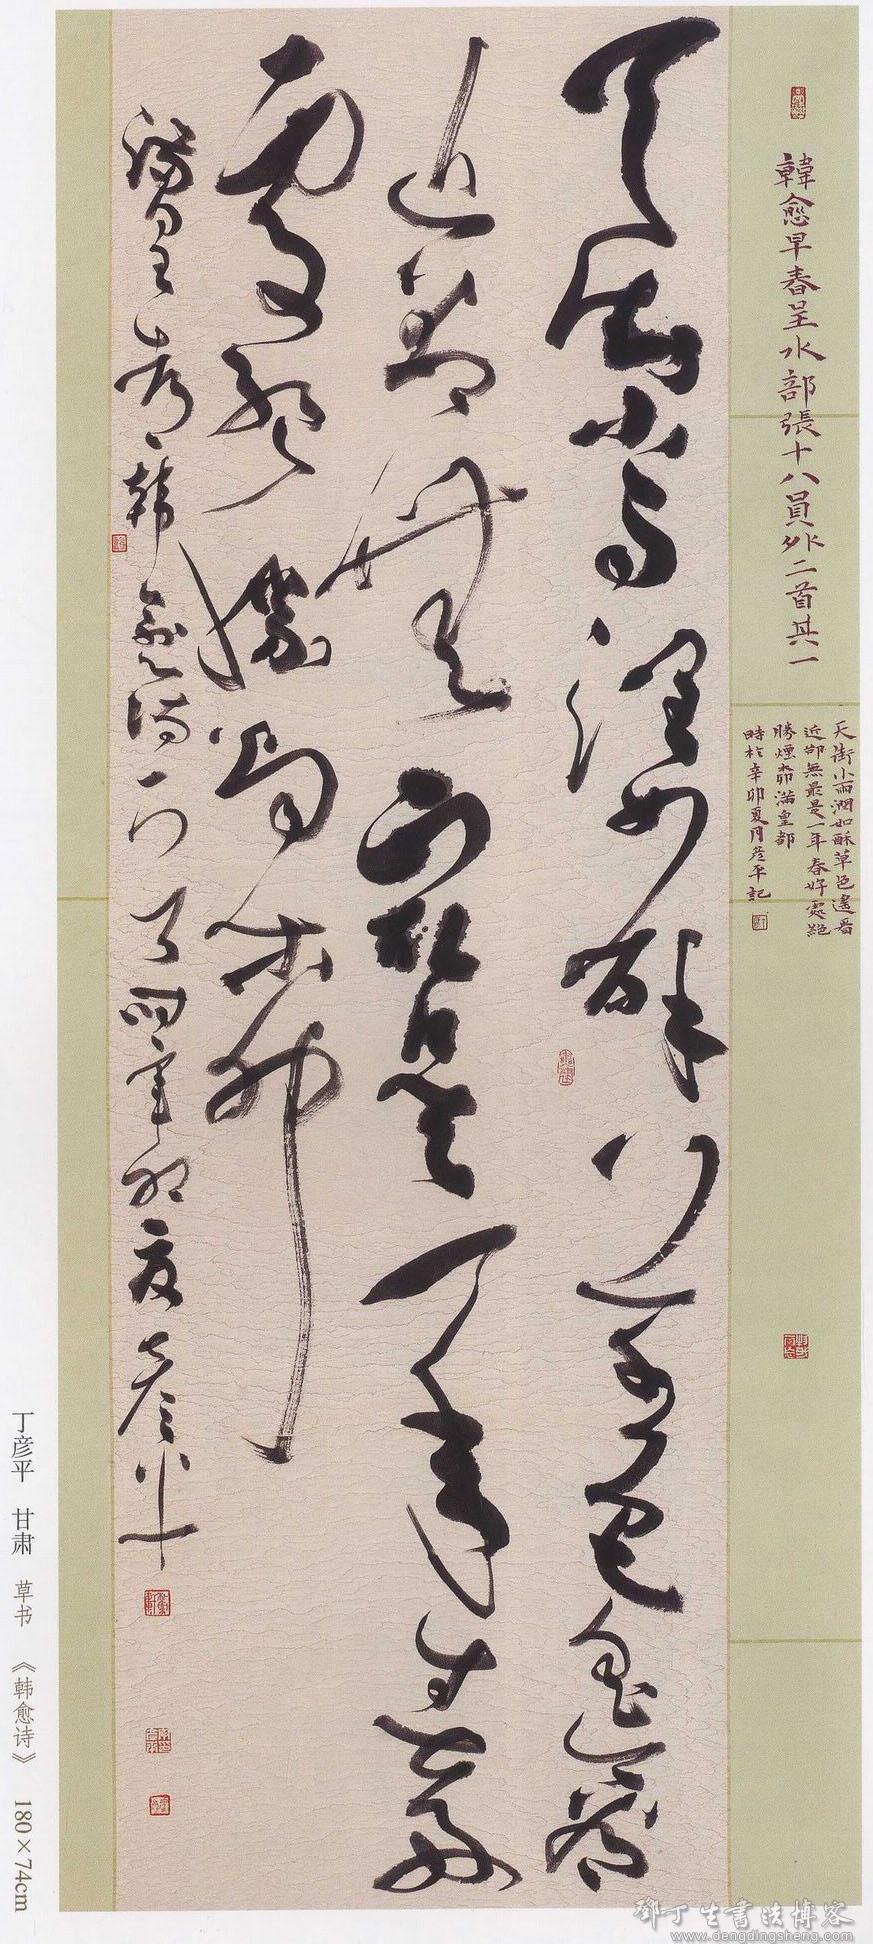 韓愈早春呈水部張十八員外二首其一
天街小雨潤如酥草色遙看
近卻無最是一年春好處絕
勝煙柳滿皇都
時於辛卯夏月彥平記
天街小雨潤如酥草色遙看
近卻無最是一年春好
處絕勝煙柳
滿皇都韓愈詩彥平
丁彦平 甘肃 草书 《韩愈诗》 180×74cm
鄧丁生書法博客
www.dengdingsheng.com